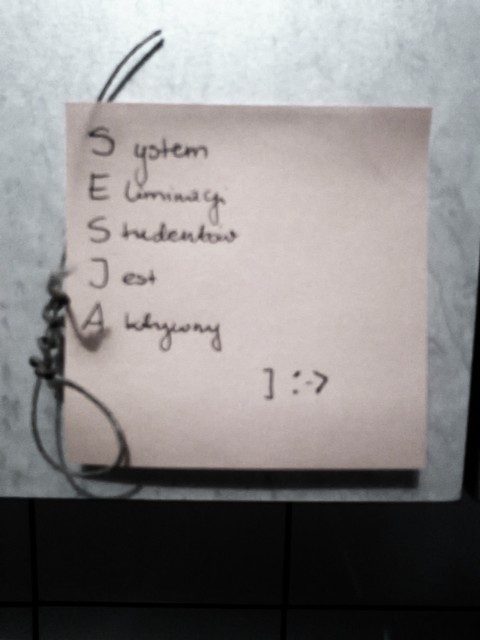 System
Eliminacji
Studentów
Jest
Aktywny
] :->